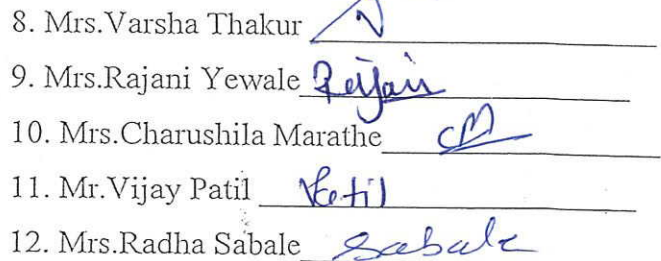 8. Mrs.Varsha Thakur
9. Mrs.Rajani Yewale Rajani
10. Mrs.Charushila Marathe CM
11. Mr.Vijay Patil Patil
12. Mrs.Radha Sabale Sabale